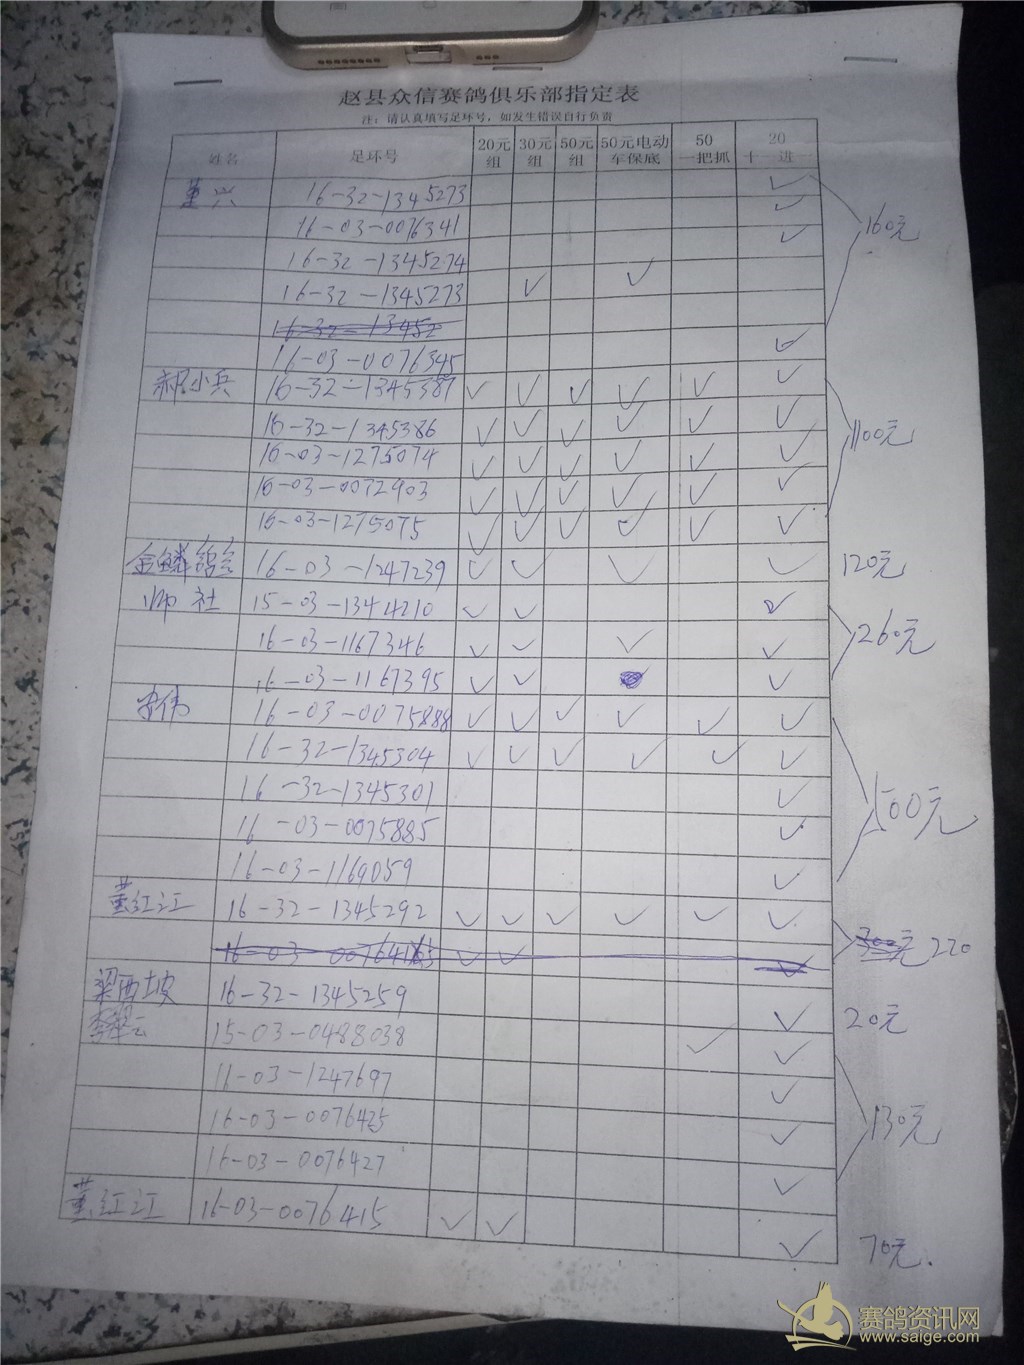 赵县众信赛鸽俱乐部指定表
注：请认真填写足环号，如发生错误自行负责
姓名 足环号 20元组 30元组 50元组 50元电动车保底 50一把抓 20十一进一
董兴 16-32-1345273 ✓
16-03-0076341 ✓
16-32-1345274 ✓ 160元
16-32-1345273 ✓ ✓
16-32-13452
16-03-0076345 ✓
郝小兵 16-32-1345387 ✓ ✓ ✓ ✓ ✓ ✓
16-32-1345386 ✓ ✓ ✓ ✓ ✓ ✓ 1100元
16-03-1275074 ✓ ✓ ✓ ✓ ✓ ✓
16-03-0072903 ✓ ✓ ✓ ✓ ✓ ✓
16-03-1275075 ✓ ✓ ✓ ✓ ✓ ✓
金鳞鸽舍 16-03-1247239 ✓ ✓ ✓ ✓ 120元
师社 15-03-1344210 ✓ ✓ ✓
16-03-1167346 ✓ ✓ ✓ ✓ 260元
16-03-1167395 ✓ ✓ ✓
安伟 16-03-0075888 ✓ ✓ ✓ ✓ ✓ ✓
16-32-1345304 ✓ ✓ ✓ ✓ ✓ ✓
16-32-1345301 ✓ 500元
16-03-0075885 ✓
16-03-1169059 ✓
董红江 16-32-1345292 ✓ ✓ ✓ ✓ ✓ ✓
✓ ✓ ✓ 元 220
梁西坡 16-32-1345259 ✓ 20元
15-03-0488038 ✓ ✓
16-03-1247697 ✓
16-03-0076425 ✓ 130元
16-03-0076427 ✓
董红江 16-03-0076415 ✓ ✓ ✓ 70元.
赛鸽资讯网
www.saige.com